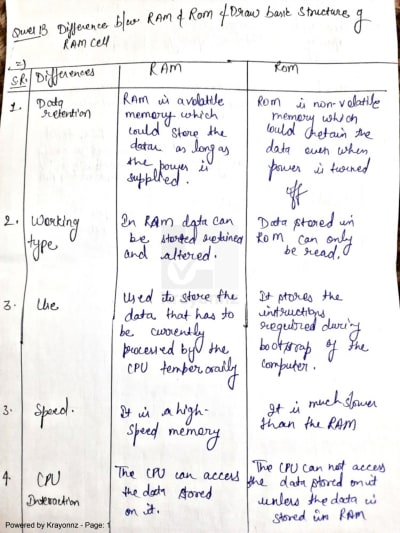 Ques 13 Difference b/w RAM & Rom & Draw basic structure of
RAM cell
=)
S.R. Differences RAM ROM
1. Data retention
RAM is a volatile
memory which
could store the
data as long as
the power is
supplied.
ROM is non-volatile
memory which
could retain the
data even when
power is turned
off
2. Working
type
In RAM data can
be stored retained
and altered.
Data stored in
ROM can only
be read.
3. Use
Used to store the
data that has to
be currently
processed by the
CPU temperorally
It stores the
instructions
required during
bootstrap of the
computer.
3. Speed.
It is a high-
speed memory
It is much slower
than the RAM
4. CPU
Interaction
The CPU can access
the data stored
on it.
The CPU can not access
the data stored on it
unless the data is
stored in RAM
Powered by Krayonnz - Page: 1